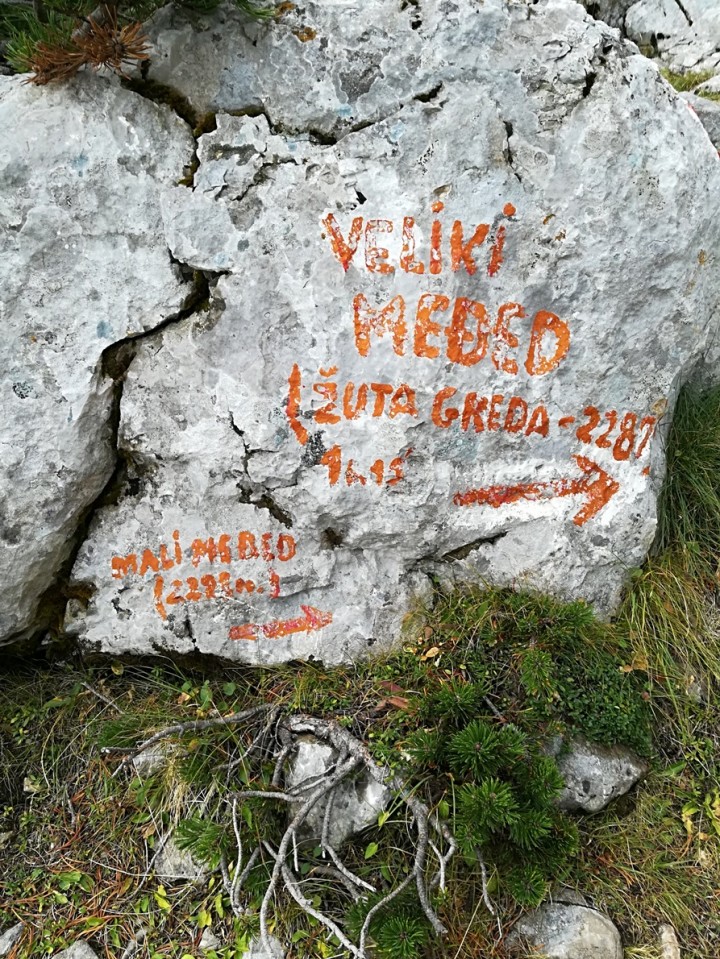 VELIKI
MEĐED
(ŽUTA GREDA - 2287
1h.15'
MALI MEĐED
(2295m.)